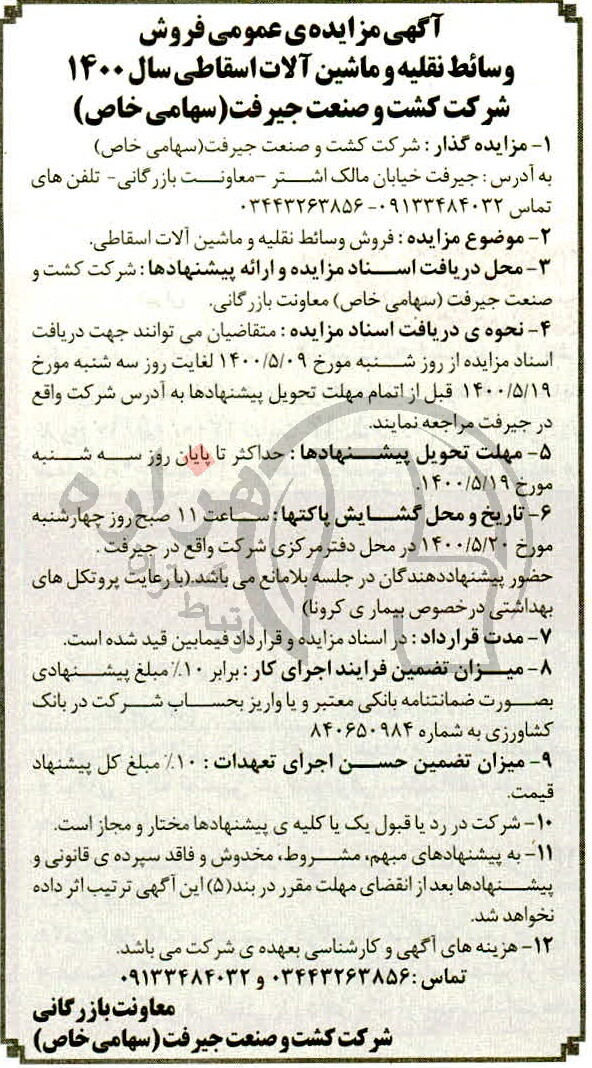 آگهی مزایده‌ی عمومی فروش
وسائط نقلیه و ماشین آلات اسقاطی سال ۱۴۰۰
شرکت کشت و صنعت جیرفت (سهامی خاص)
۱- مزایده گذار : شرکت کشت و صنعت جیرفت(سهامی خاص)
به آدرس : جیرفت خیابان مالک اشتر –معاونت بازرگانی- تلفن های
تماس ۰۹۱۳۳۴۸۴۰۳۲- ۰۳۴۴۳۲۶۳۸۵۶
۲- موضوع مزایده : فروش وسائط نقلیه و ماشین آلات اسقاطی.
۳- محل دریافت اسناد مزایده و ارائه پیشنهادها : شرکت کشت و
صنعت جیرفت (سهامی خاص) معاونت بازرگانی.
۴- نحوه ی دریافت اسناد مزایده : متقاضیان می توانند جهت دریافت
اسناد مزایده از روز شنبه مورخ ۱۴۰۰/۵/۰۹ لغایت روز سه شنبه مورخ
۱۴۰۰/۵/۱۹ قبل از اتمام مهلت تحویل پیشنهادها به آدرس شرکت واقع
در جیرفت مراجعه نمایند.
۵- مهلت تحویل پیشنهادها : حداکثر تا پایان روز سه شنبه
مورخ ۱۴۰۰/۵/۱۹.
۶- تاریخ و محل گشایش پاکتها : ساعت ۱۱ صبح روز چهارشنبه
مورخ ۱۴۰۰/۵/۲۰ در محل دفترمرکزی شرکت واقع در جیرفت .
حضور پیشنهاددهندگان در جلسه بلامانع می باشد.(با رعایت پروتکل های
بهداشتی درخصوص بیماری کرونا)
۷- مدت قرارداد : در اسناد مزایده و قرارداد فیمابین قید شده است.
۸- میزان تضمین فرایند اجرای کار : برابر ۱۰٪ مبلغ پیشنهادی
بصورت ضمانتنامه بانکی معتبر و یا واریز بحساب شرکت در بانک
کشاورزی به شماره ۸۴۰۶۵۰۹۸۴
۹- میزان تضمین حسن اجرای تعهدات : ۱۰٪ مبلغ کل پیشنهاد
قیمت.
۱۰- شرکت در رد یا قبول یک یا کلیه ی پیشنهادها مختار و مجاز است.
۱۱- به پیشنهادهای مبهم، مشروط، مخدوش و فاقد سپرده ی قانونی و
پیشنهادها بعد از انقضای مهلت مقرر در بند(۵) این آگهی ترتیب اثر داده
نخواهد شد.
۱۲- هزینه های آگهی و کارشناسی بعهده ی شرکت می باشد.
تماس :۰۳۴۴۳۲۶۳۸۵۶ و ۰۹۱۳۳۴۸۴۰۳۲
معاونت بازرگانی
شرکت کشت و صنعت جیرفت (سهامی خاص)
هزاره